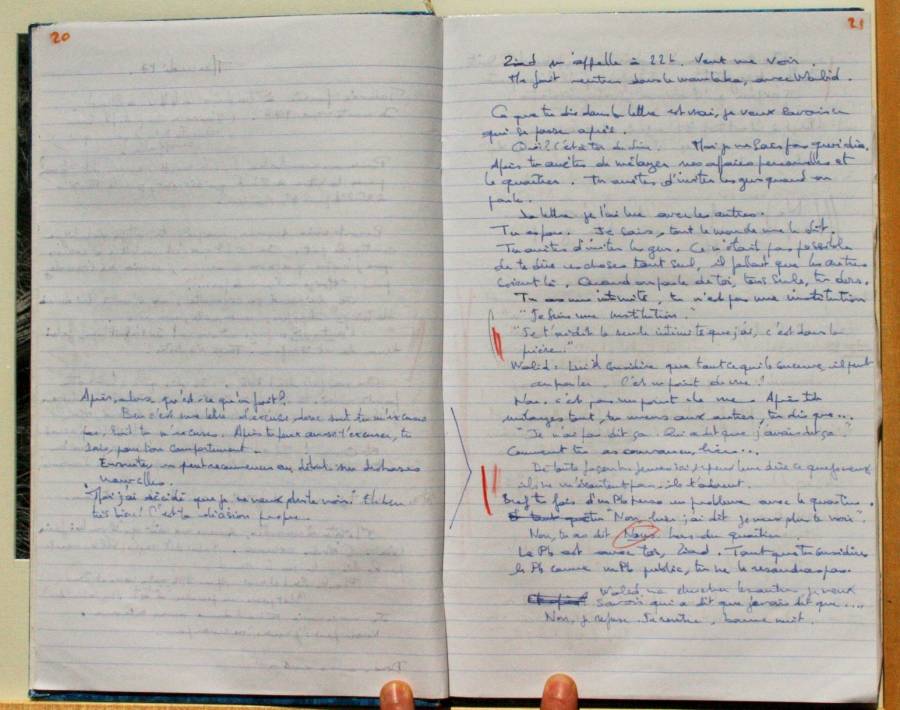 20
Après, alors qu'est-ce qu'on fait?
Ben c'est une lettre d'excuse, donc soit tu m'excuses
pas, soit tu m'excuses. Après tu peux aussi t'excuser, tu
sais, pour ton comportement.
Ensuite, on peut recommencer au début sur des bases
nouvelles.
"Moi j'ai décidé que je ne veux plus te voir." Eh ben
très bien! C'est ta décision propre.
21
Ziad m'appelle à 22h. Veut me voir.
Me fait rentrer dans le avec Walid.
Ce que tu dis dans la lettre est vrai, je veux savoir ce
qui se passe après.
c'est à toi de dire. Moi je ne sais pas quoi dire.
Après tu arrêtes de mélanger nos affaires personnelles et
le quartier. Tu arrêtes d'inviter les gens quand on
parle.
La lettre je l'ai lue avec les autres.
Tu as peur. Je sais, tout le monde me le dit.
Tu arrêtes d'inviter les gens. Ce n'était pas possible
de te dire ces choses tout seul, il fallait que les autres
soient là. Quand on parle de toi, tout seul, tu dors.
Tu as une intimité, tu n'es pas une institution
"Je suis une institution."
"Je t'ai dit la seule intimité que j'ai, c'est dans la
prière."
Walid: Lui considère que tout ce qui le concerne, il peut
en parler. C'est un point de vue!
Non, c'est pas un point de vue. Après tu
mélanges tout, tu viens aux autres, tu dis que...
"Je n'ai pas dit ça. Qui a dit que j'avais dit ça."
Comment tu as convaincu, hier...
De toute façon les jeunes ici, je peux leur dire ce que je veux
ils ne m'écoutent pas. ils t'adorent.
Bref tu fais d'un Pb perso un problème avec le quartier.
"Non, hier j'ai dit je veux plus te voir".
Non, tu as dit Nous hors du quartier.
Le Pb est avec toi, Ziad. Tant que tu considères
le Pb comme un Pb public, tu ne le résoudras pas.
Walid, va chercher les autres, je veux
savoir qui a dit que j'avais dit que....
Non, je refuse. Je rentre, bonne nuit.